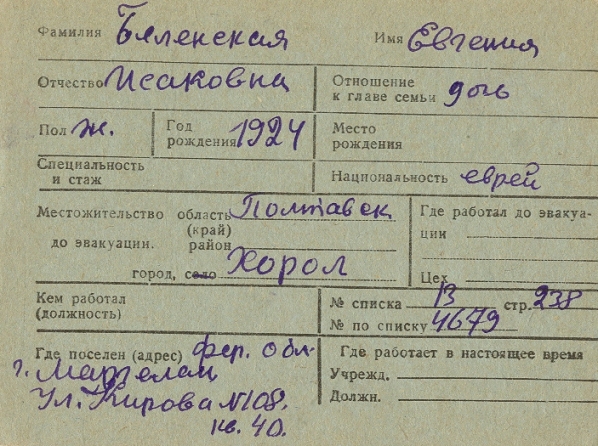 Фамилия Беленская Имя Евгения
Отчество Исаковна Отношение к главе семьи дочь
Пол ж. Год рождения 1924 Место рождения
Специальность и стаж Национальность еврей
Местожительство область Полтавск Где работал до эвакуа-
(край) ции
до эвакуации. район
город, село Хорол Цех
Кем работал № списка 13 стр. 238
(должность) № по списку 4679
Где поселен (адрес) фер. обл. Где работает в настоящее время
г. Маргелан Учрежд.
Ул. Кирова N 108. Должн.
кв. 40.